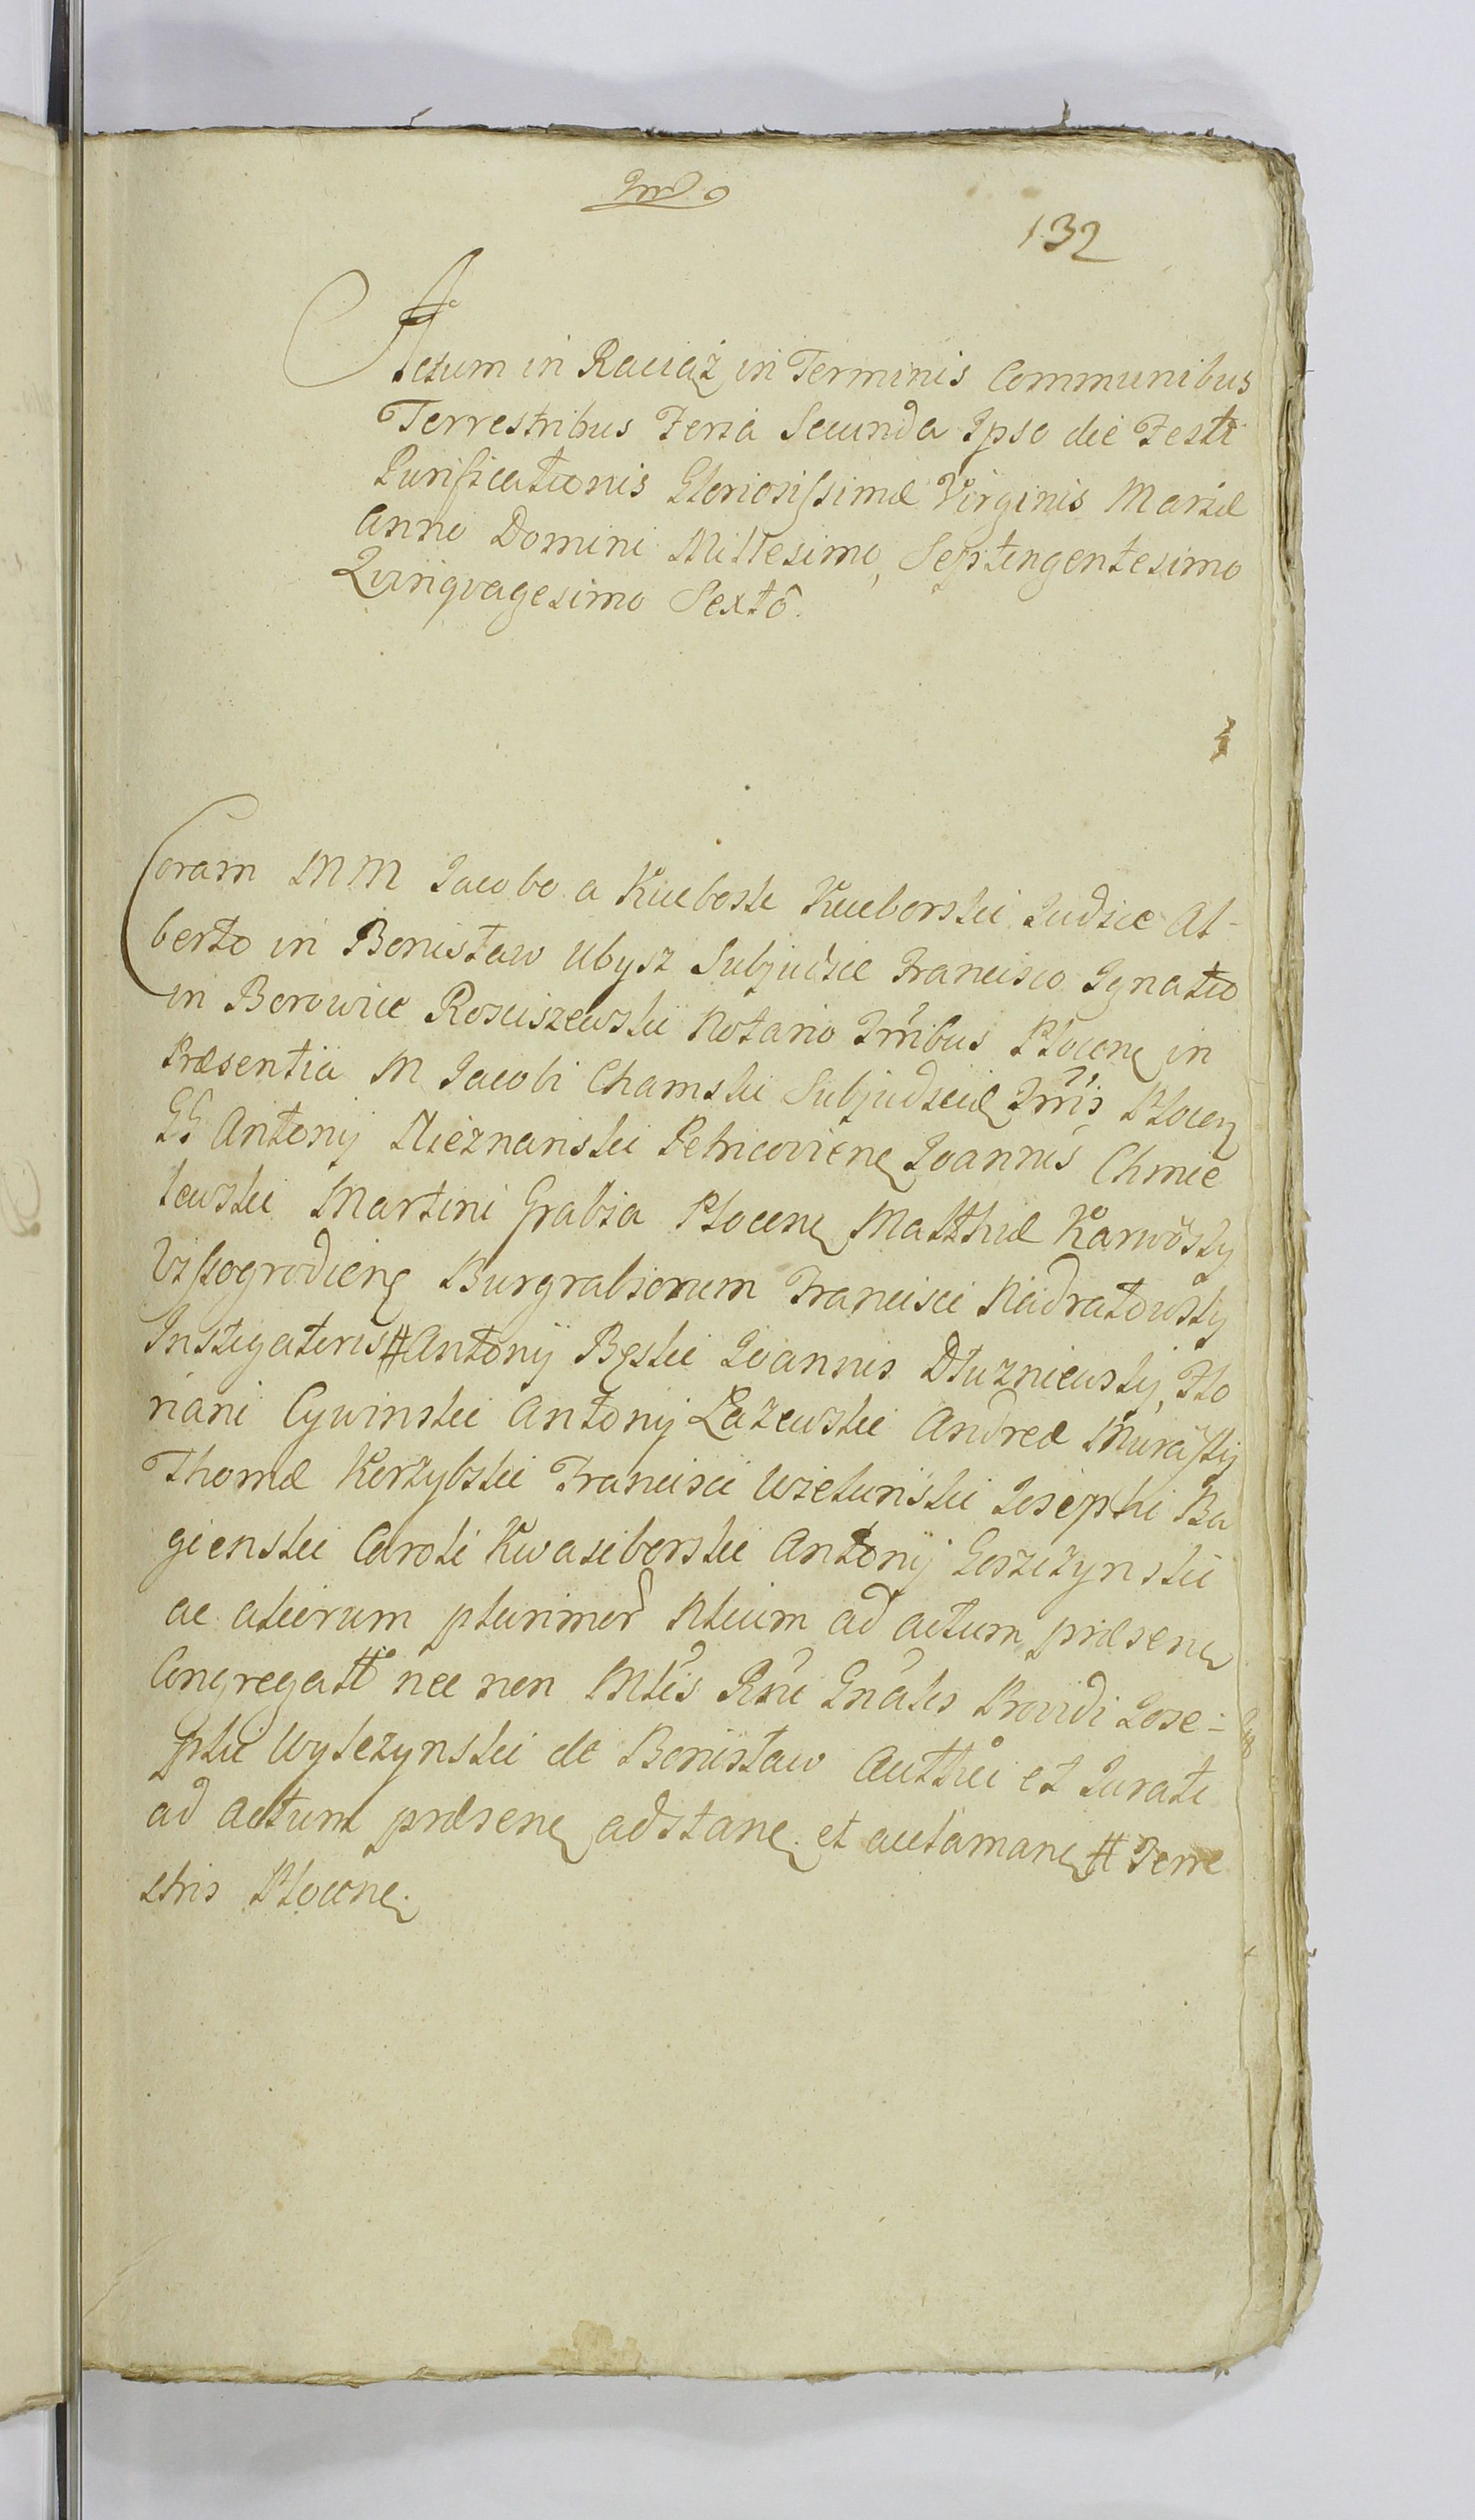 132
Actum in Raciąż in Terminis Communibus
Terrestribus Feria Secunda Ipso die Festi
Purificationis Gloriosissimæ Virginis Mariæ
Anno Domini Millesimo, Septingentesimo
Quinqvagesimo Sexto.
Coram MM Iacobo a Kucborsk Kucborski Iudice Al-
berto in Bonisław Ubysz Subjudice Francisco Ignatio
in Borowice Rosciszewski Notario Trribus Plocen in
Præsentia M Iacobi Chamski Subjudicis Trris Plocen
GG Antonij Nieznanski Petricovien Ioannis Chmie
lewski Martini Grabia Plocen Matthiæ Karwosky
Wyssogrodien Burgrabiorum Francisci Nadratowsky
Instigatoris # Antonij Bęski Ioannis Dłuzniewsky, Flo
riani Cywinski Antonij Łazewski Andreæ Murasky
Thomæ Korzybski Francisci Wielunski Iosephi Ba
gienski Caroli Kwasiborski Antonij Goszczynski
ac aliorum plurimor Nlium ad actum præsen
Congregatt nec non Mtis Rni Gnalis Providi Iose-
phi Wylezynski de Bonisław Autthci et Iurati
ad Actum præsen adstan. et acclaman # Terre
stris Plocen.